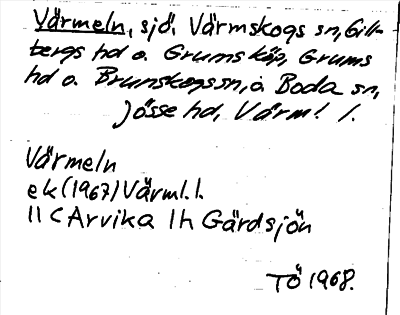 Värmeln, sjö. Värmskogs sn, Gill-
bergs hd o. Grums köp, Grums
hd o. Brunskogs sn, o. Boda sn,
Jösse hd, Värml. l.
Värmeln
ek (1967) Värml. l.
11 C Arvika 1 h Gärdsjön
TÖ 1968.